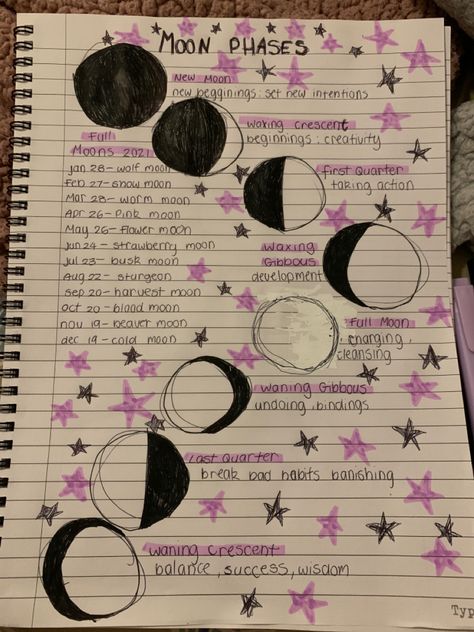 MOON PHASES
New Moon
new begginings : set new intentions
waxing crescent
beginnings : creativity
Full
Moons 2021
jan 28 - wolf moon
Feb 27 - snow moon
Mar 28 - worm moon
Apr 26 - Pink moon
May 26 - flower moon
Jun 24 - strawberry moon
Jul 23 - busk moon
Aug 22 - sturgeon
Sep 20 - harvest moon
oct 20 - blood moon
nov 19 - beaver moon
dec 19 - cold moon
first Quarter
taking action
waxing
Gibbous
development
Full Moon
changing,
cleansing
waning Gibbous
undoing, bindings
Last Quarter
break bad habits banishing
waning crescent
balance, success, wisdom
Typ